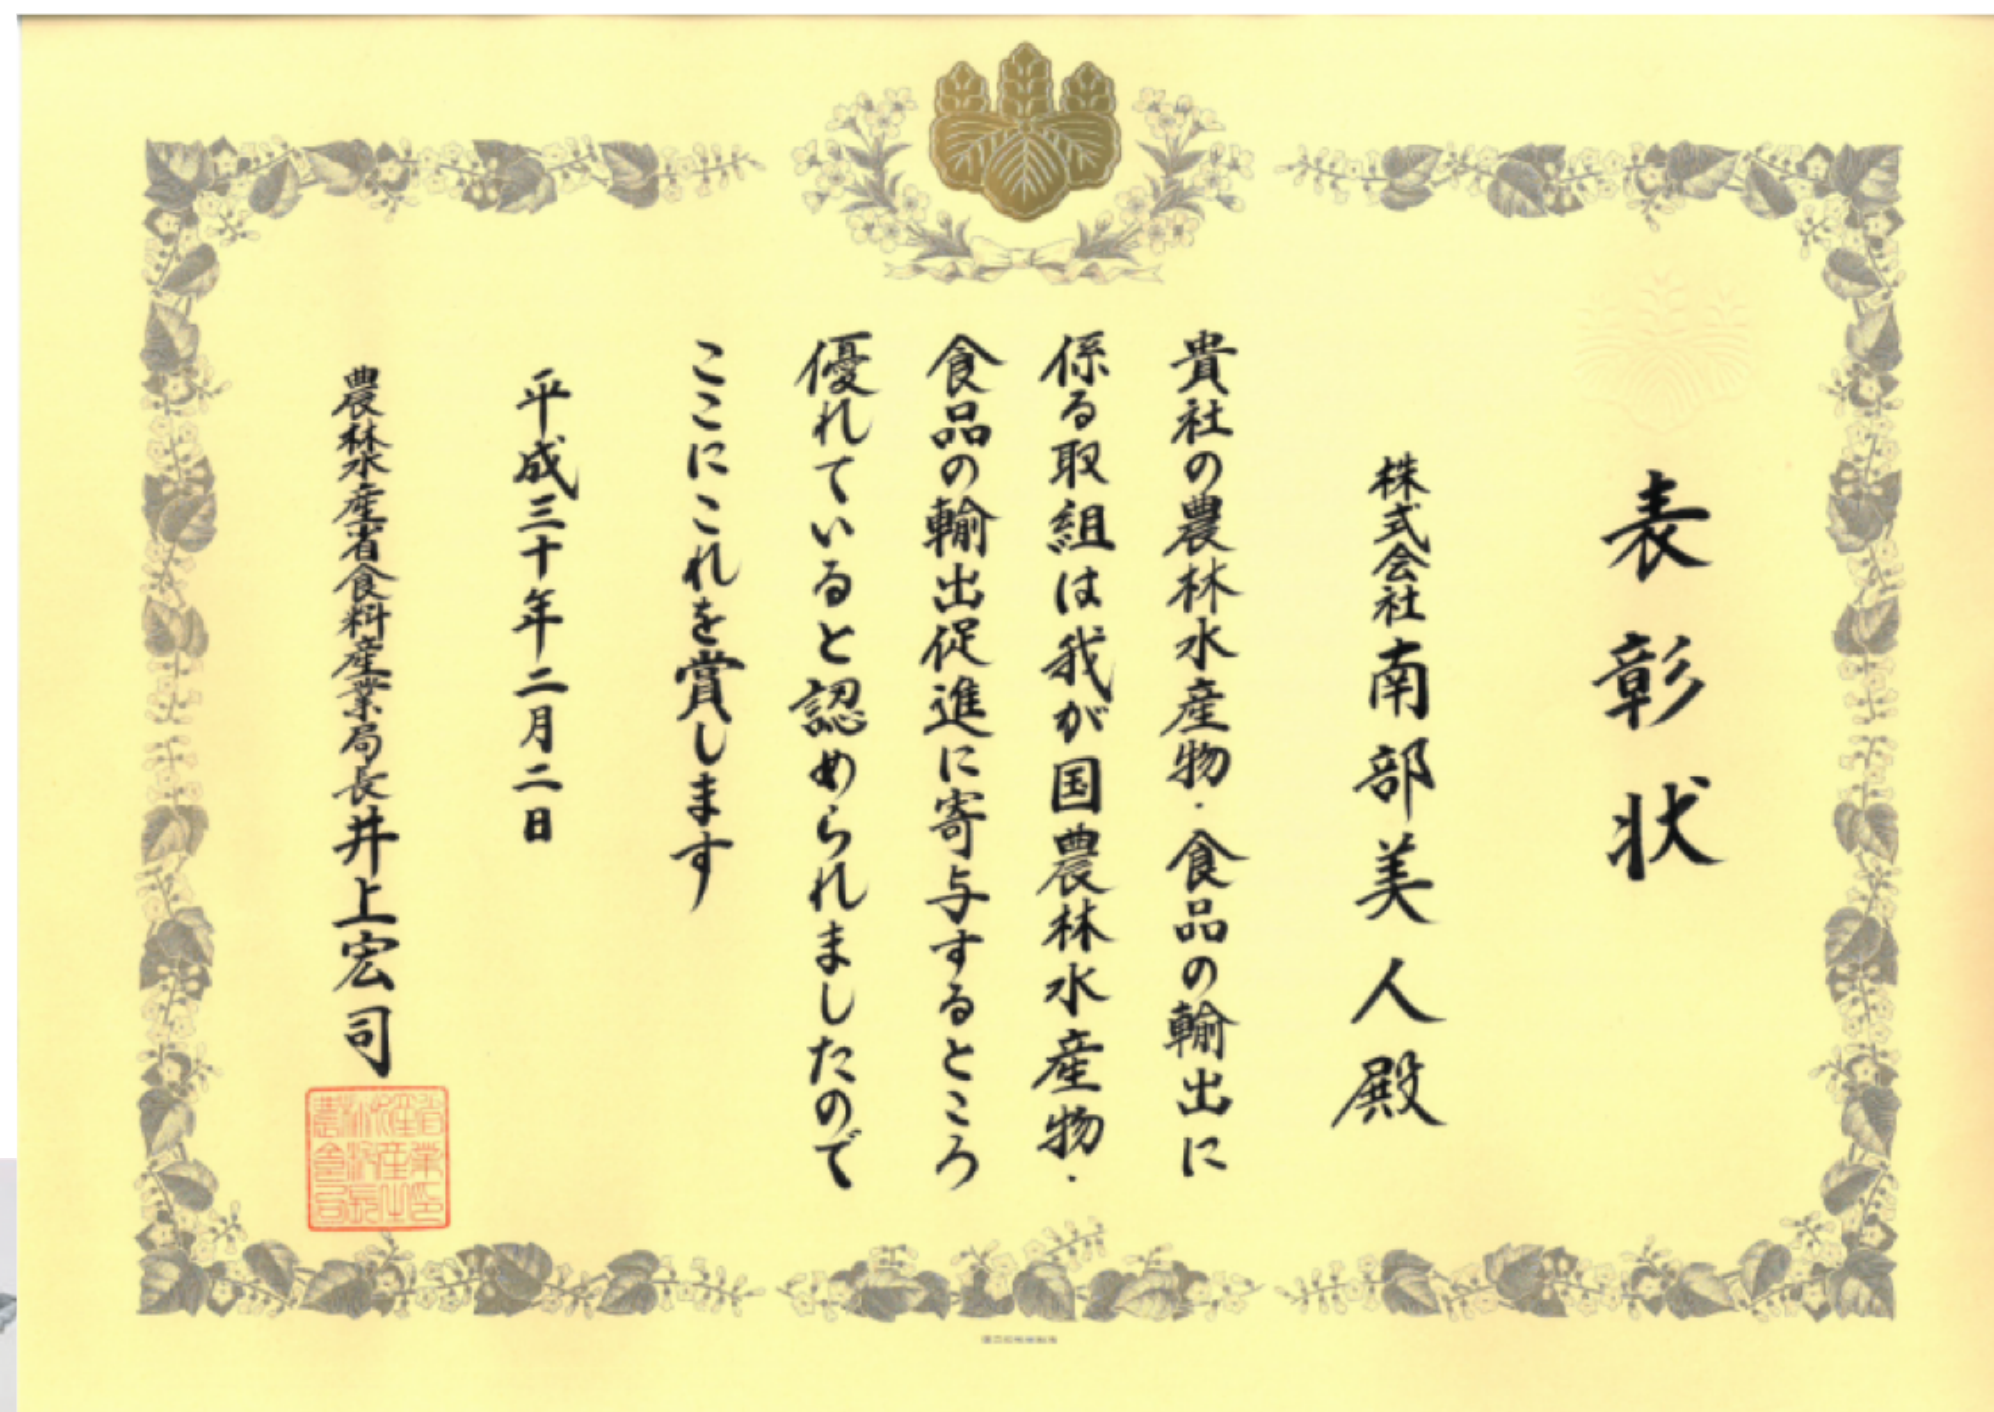 表彰状
株式会社南部美人殿
貴社の農林水産物・食品の輸出に
係る取組は我が国農林水産物・
食品の輸出促進に寄与するところ
優れていると認められましたので
ここにこれを賞します
平成三十年二月二日
農林水産省食料産業局長井上宏司